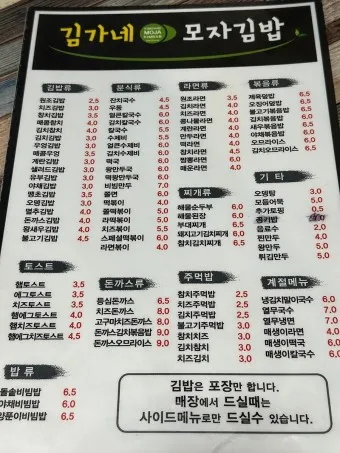 김가네 MOJA 모자김밥
김밥류
원조김밥 2.5
치즈김밥 3.0
참치김밥 3.5
매콤참치 4.0
김치참치 4.0
김치김밥
우엉김밥 3.0
매콤우엉 3.0
계란김밥 3.0
샐러드김밥 3.0
유부김밥 3.0
야채김밥
땡초김밥
오뎅김밥
멸추김밥 4.0
돈까스김밥 4.0
왕새우김밥 4.0
불고기김밥 4.5
분식류
잔치국수 4.5
우동 4.5
얼큰칼국수 6.0
김치칼국수
칼국수 5.5
수제비 5.5
얼큰수제비 6.0
김치수제비 6.0
떡국 6.0
왕만두국 6.0
떡왕만두국 6.0
비빔만두 7.0
쫄면
떡볶이 4.0
쫄떡볶이 5.0
라떡볶이 5.0
치즈볶이 5.5
스페셜떡볶이 6.0
라면볶이 4.0
라면류
원조라면 3.5
김치라면 4.0
치즈라면 4.0
콩나물라면 4.0
계란라면
만두라면 4.0
떡라면 4.0
참치라면 4.5
짬뽕라면
매운라면 4.0
찌개류
해물순두부 6.0
해물된장 6.0
부대찌개 6.5
돼지고기김치찌개 6.5
참치김치찌개 6.5
볶음류
제육덮밥 6.5
오징어덮밥 6.5
불고기볶음밥 6.5
김치볶음밥 6.0
새우볶음밥 6.5
야채볶음밥 6.0
오므라이스 6.5
김치오므라이스 6.5
기타
오뎅탕 3.0
모듬어묵 5.0
추가토핑 0.5
공기밥
음료수 2.0
찐만두 4.0
왕만두 5.0
튀김만두 5.0
토스트
햄토스트 3.5
에그토스트 3.5
치즈토스트 3.5
햄에그토스트 4.0
햄치즈토스트 4.0
햄에그치즈토스트 4.5
돈까스류
등심돈까스 6.5
치즈돈까스 8.0
고구마치즈돈까스 8.0
돈까스김치볶음밥 9.0
돈까스오므라이스 9.0
주먹밥
참치주먹밥 2.5
치즈주먹밥 2.5
김치주먹밥 2.5
불고기주먹밥 3.0
참치치즈 3.0
김치참치 3.0
치즈김치 3.0
계절메뉴
냉김치말이국수 6.0
열무국수 7.0
열무냉면 7.0
매생이라면 5.0
매생이떡국 6.0
매생이칼국수 6.0
밥류
돌솥비빔밥 6.5
야채비빔밥 6.0
양푼이비빔밥 6.5
김밥은 포장만 합니다.
매장에서 드실때는
사이드메뉴로만 드실수 있습니다.